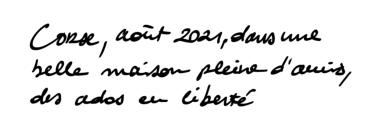 Corse, août 2021, dans une
belle maison pleine d'amis,
des ados en liberté